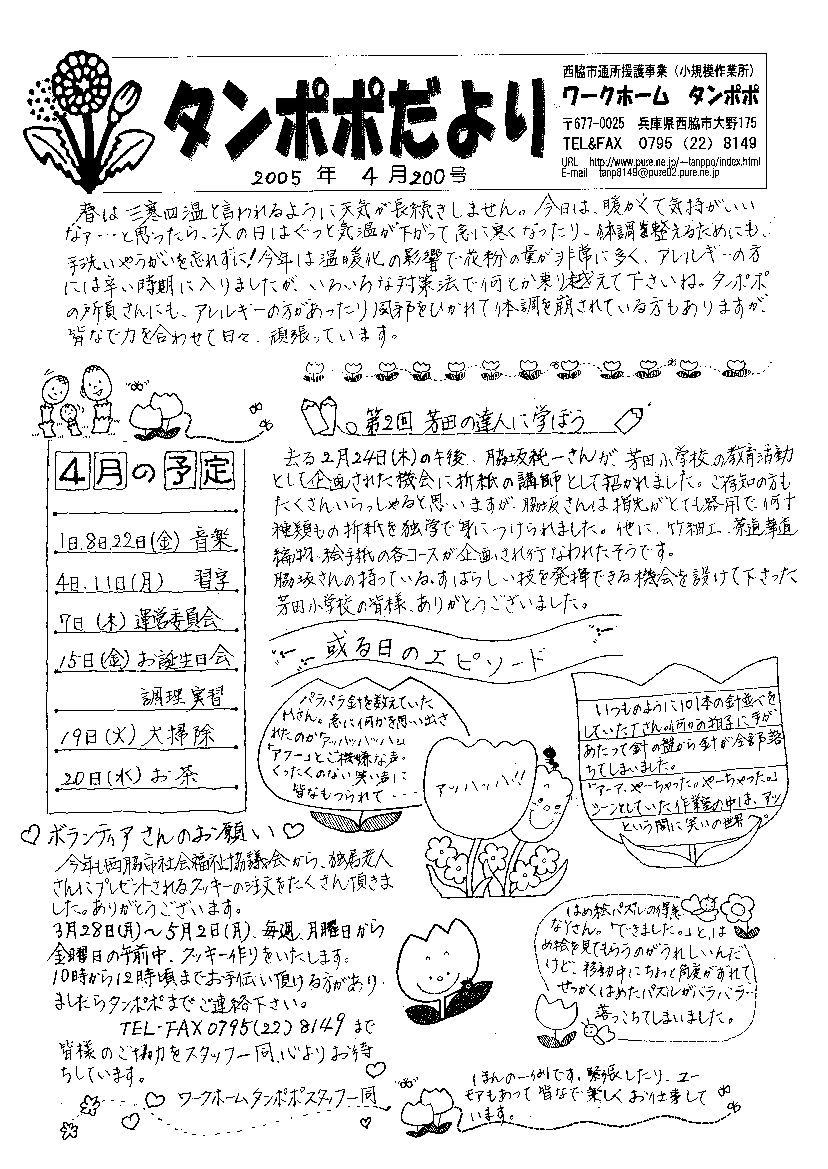 タンポポだより
2005年 4月200号
西脇市通所援護事業（小規模作業所）
ワークホーム タンポポ
〒677-0025 兵庫県西脇市大野175
TEL&FAX 0795（22）8149
URL http://www.pure.ne.jp/~tanppo/index.html
E-mail tanp8149@pure02.pure.ne.jp
春は三寒四温と言われるように天気が長続きしません。今日は、暖かくて気持がいい
なァ…と思ったら、次の日はぐっと気温が下がって急に寒くなったり…体調を整えるためにも、
手洗いやうがいを忘れずに!今年は温暖化の影響で花粉の量が非常に多く、アレルギーの方
には辛い時期に入りましたが、いろいろな対策法で何とか乗り越えて下さいね。タンポポ
の所員さんにも、アレルギーの方があったり風邪をひかれて体調を崩されている方もありますが、
皆なで力を合わせて日々、頑張っています。
4月の予定
1日,8日,22日(金) 音楽
4日,11日(月) 習字
7日(木) 運営委員会
15日(金) お誕生日会
調理実習
19日(火) 大掃除
20日(水) お茶
第2回 芳田の達人に学ぼう
去る2月24日(木)の午後、脇坂純一さんが、芳田小学校の教育活動
として企画された機会に折紙の講師として招かれました。ご存知の方も
たくさんいらっしゃると思いますが、脇坂さんは指先がとても器用で、何十
種類もの折紙を独学で身につけられました。他に、竹細工、茶道、華道
編物、絵手紙の各コースが企画され行なわれたそうです。
脇坂さんの持っている、すばらしい技を発揮できる機会を設けて下さった
芳田小学校の皆様、ありがとうございました。
或る日のエピソード
パラパラ針を数えていた
Hさん。急に何かを思い出さ
れたのか「アッハッハッハム
「アフー」とご機嫌な声。
くったくのない笑い声に
皆なもつられて・・・
アッハッハ!!
いつものように101本の針並べを
していたTさん。何かの拍子に手が
あたって針の盤から針が全部落
ちてしまいました。
「アーア、やーちゃった。やーちゃった。」
シーンとしていた作業室の中は、アッ
という間に笑いの世界へ。
ボランティアさんのお願い
今年も西脇市社会福祉協議会から、独居老人
さんにプレゼントされるクッキーの注文をたくさん頂きま
した。ありがとうございます。
3月28日(月)～5月2日(月)、毎週、月曜日から
金曜日の午前中、クッキー作りをいたします。
10時から12時頃までお手伝い頂ける方があり
ましたらタンポポまでご連絡下さい。
TEL・FAX 0795(22)8149 まで
皆様のご協力をスタッフ一同、心よりお待
ちしています。
ワークホームタンポポスタッフ一同
はめ絵パズルの得意
なYさん。「できました。」と、は
め絵を見てもらうのがうれしいんだ
けど、移動中にちょっと角度がずれて
せっかくはめたパズルがバラバラ…
落っこちてしまいました。
ほんの一例です。緊張したり、ユー
モアもあって皆なで楽しくお仕事して
います。